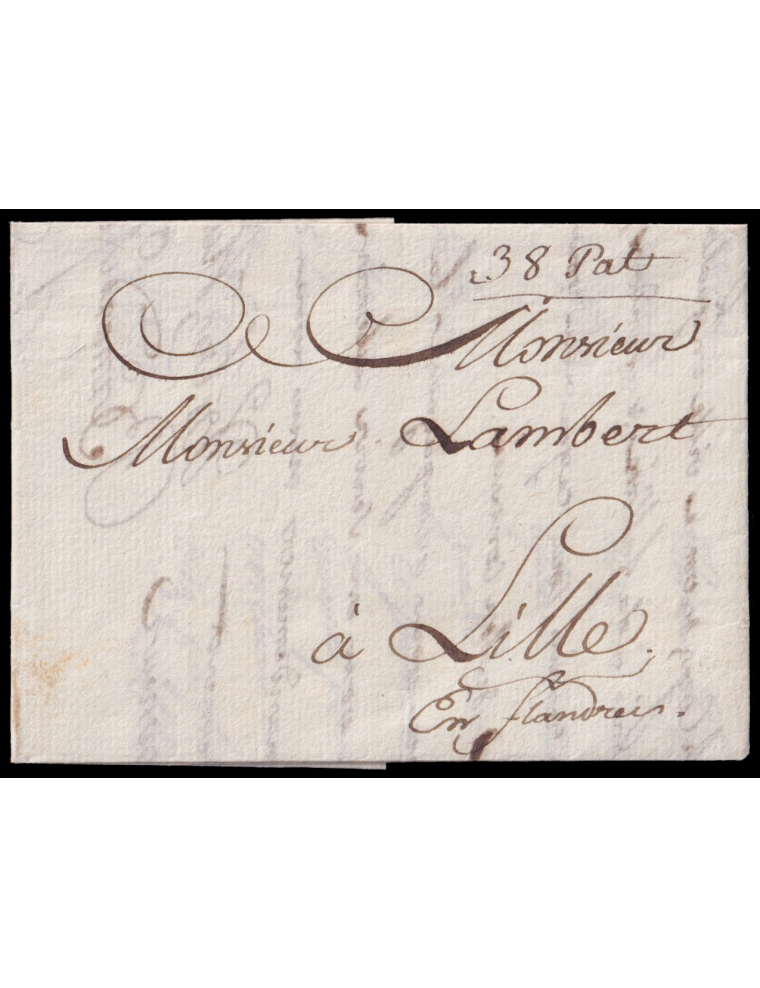 38 Pat
Monsieur
Monsieur Lambert
à Lille.
En flandres.